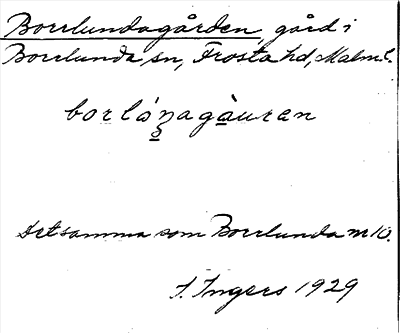 Borrlundagården, gård i
Borrlunda sn, Frosta hd, Malm. l.
borlánagàuran
Det samma som Borrlunda nr 10.
I. Ingers 1929